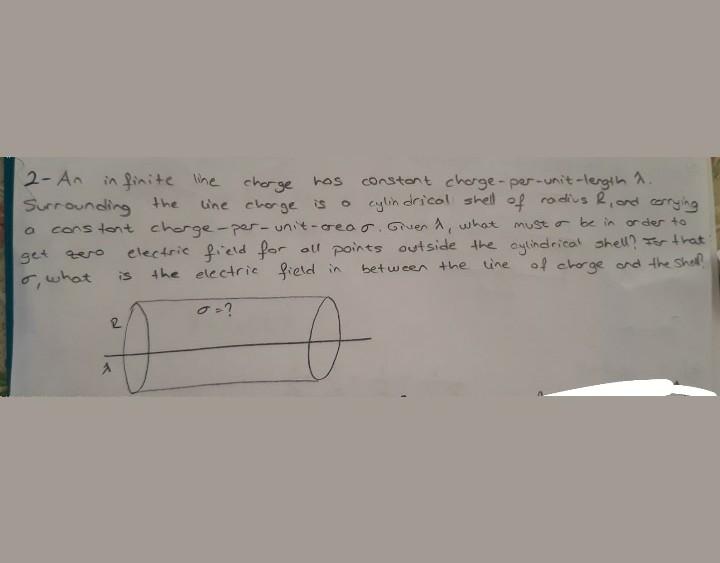 2- An infinite line charge has constant charge-per-unit-length λ.
Surrounding the line charge is a cylindrical shell of radius R, and carrying
a constant charge-per-unit-area σ. Given λ, what must σ be in order to
get zero electric field for all points outside the cylindrical shell? For that
σ, what is the electric field in between the line of charge and the shell?
σ=?
R
λ